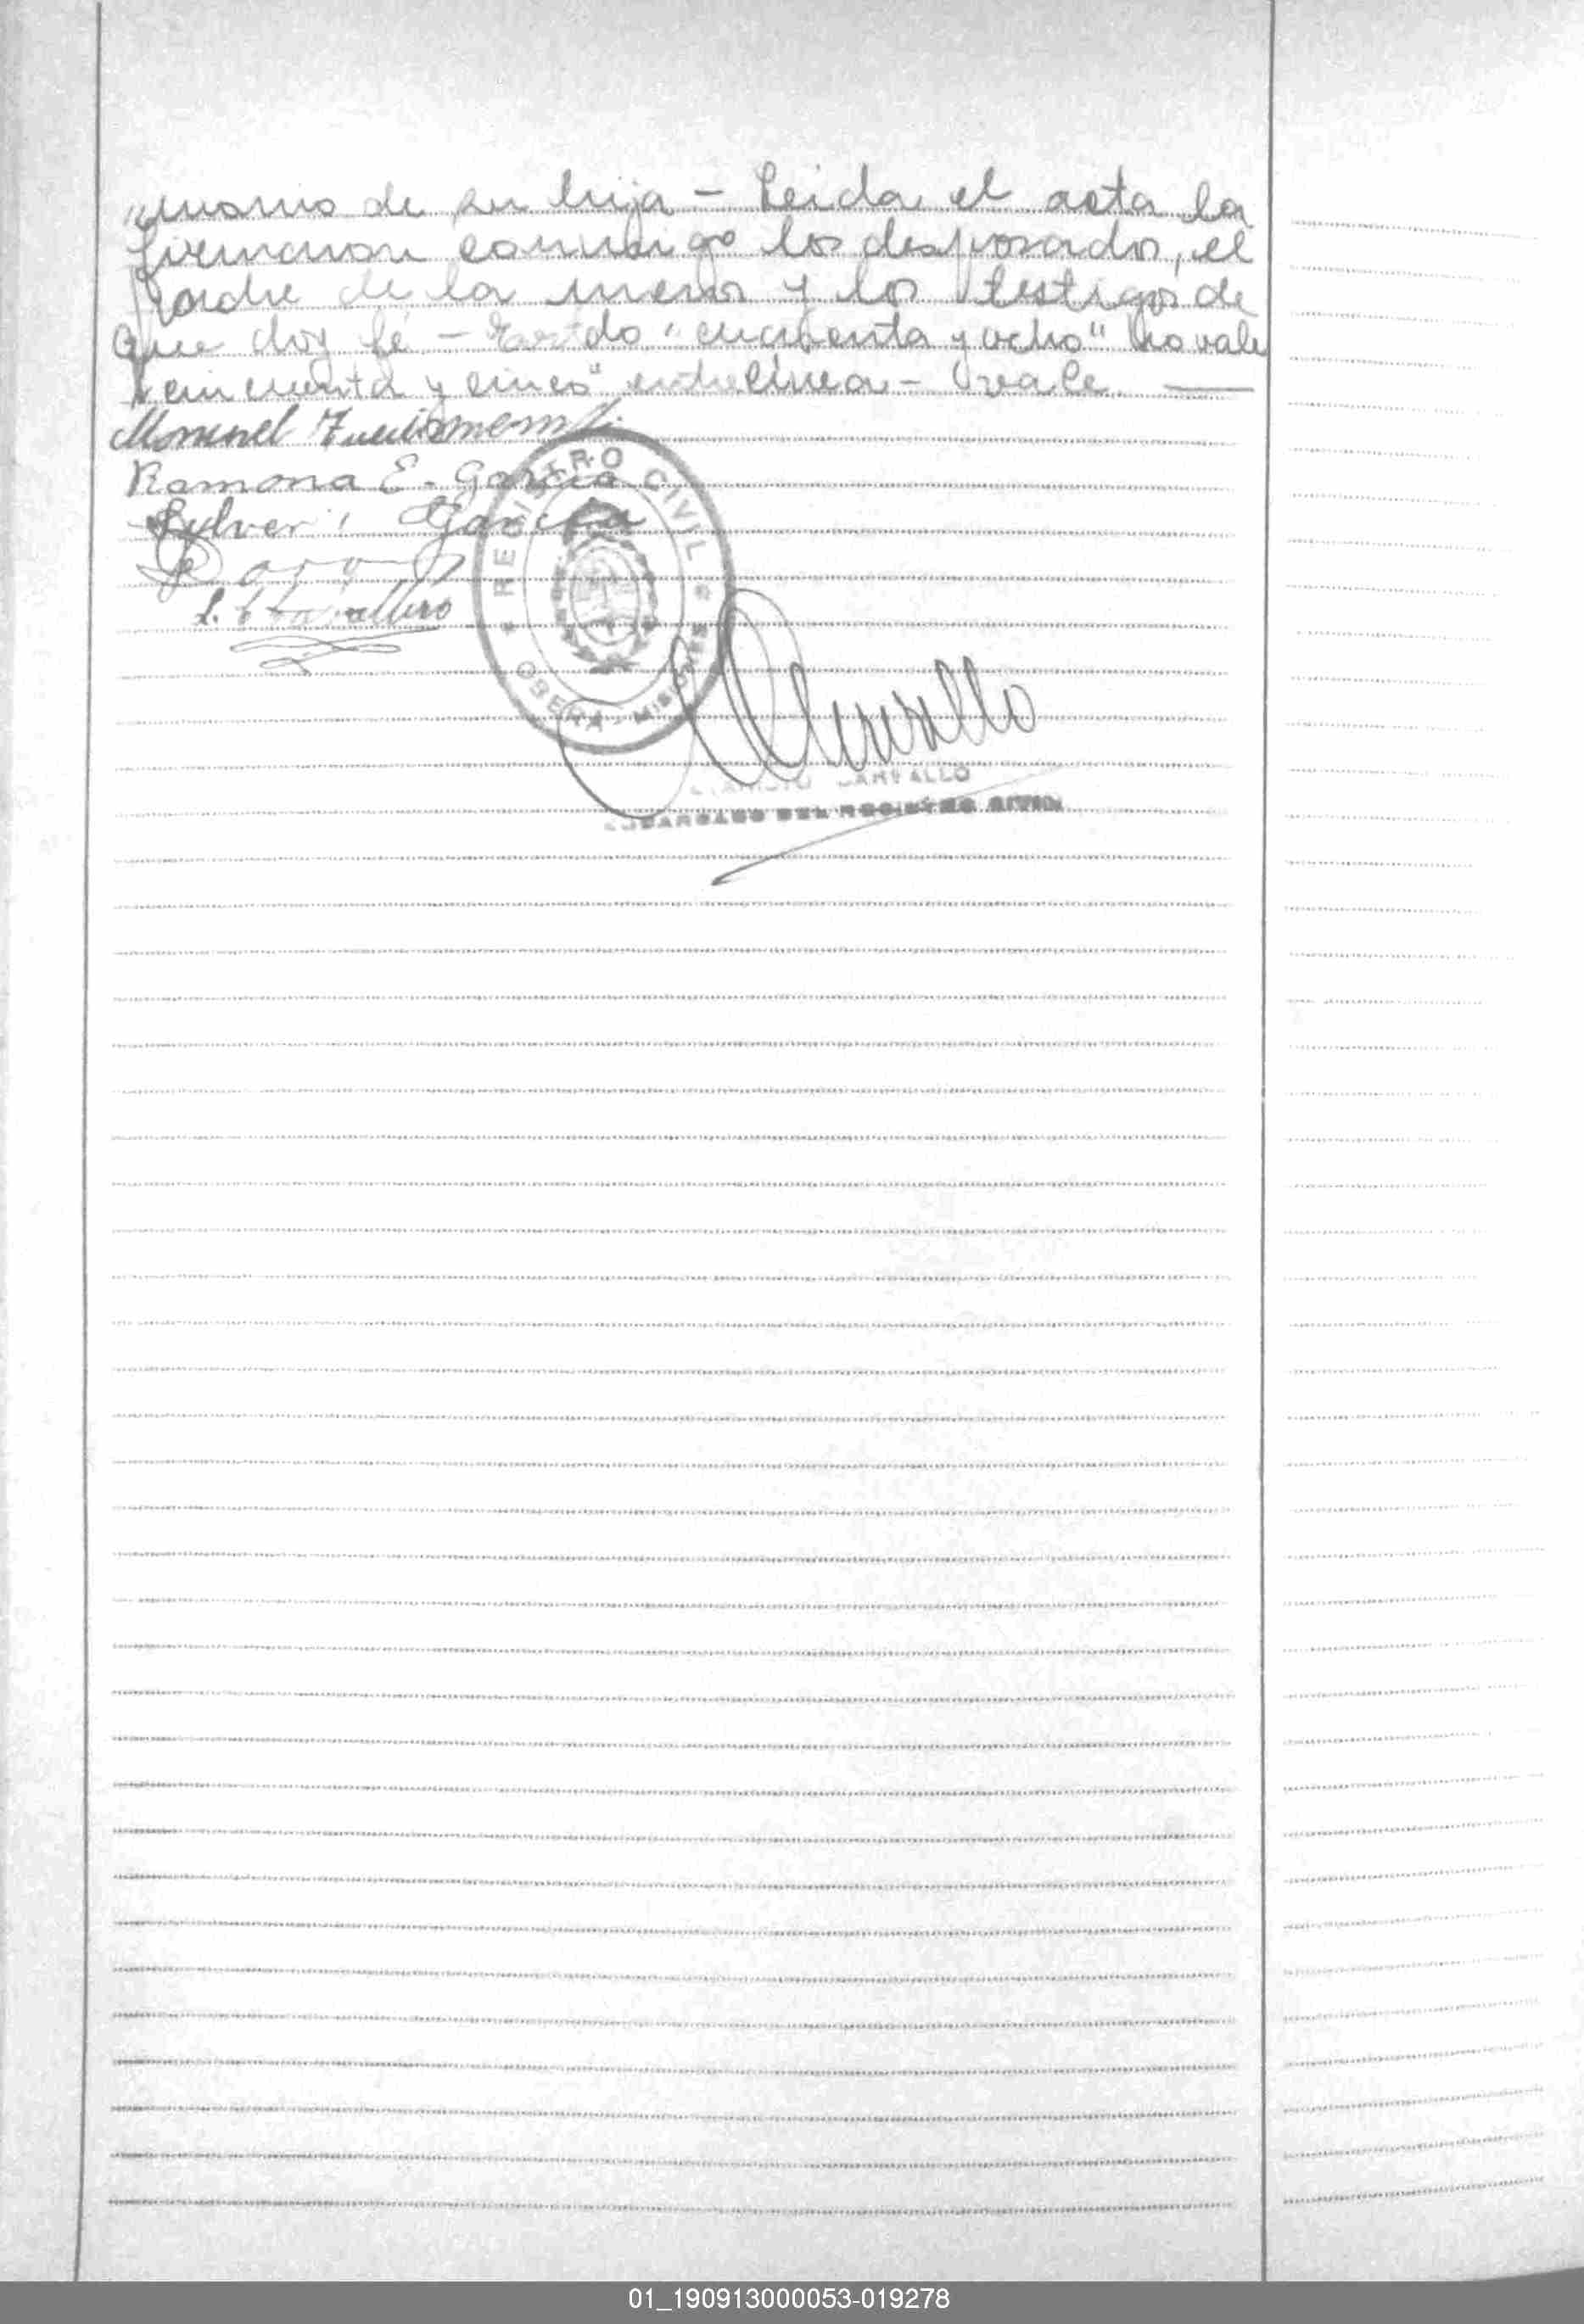 monio de su hija - Leida el acta la
firmaron conmigo los desposados, el
padre de la menor y los testigos de
que doy fé - "cuarenta y ocho" no vale
"cincuenta y cinco" entrelinea - vale.
Manuel
Ramona E. Garcia
Garcia
REGISTRO CIVIL
OBERA - MISIONES
CARVALLO
ENCARGADO DEL REGISTRO CIVIL
01_190913000053-019278